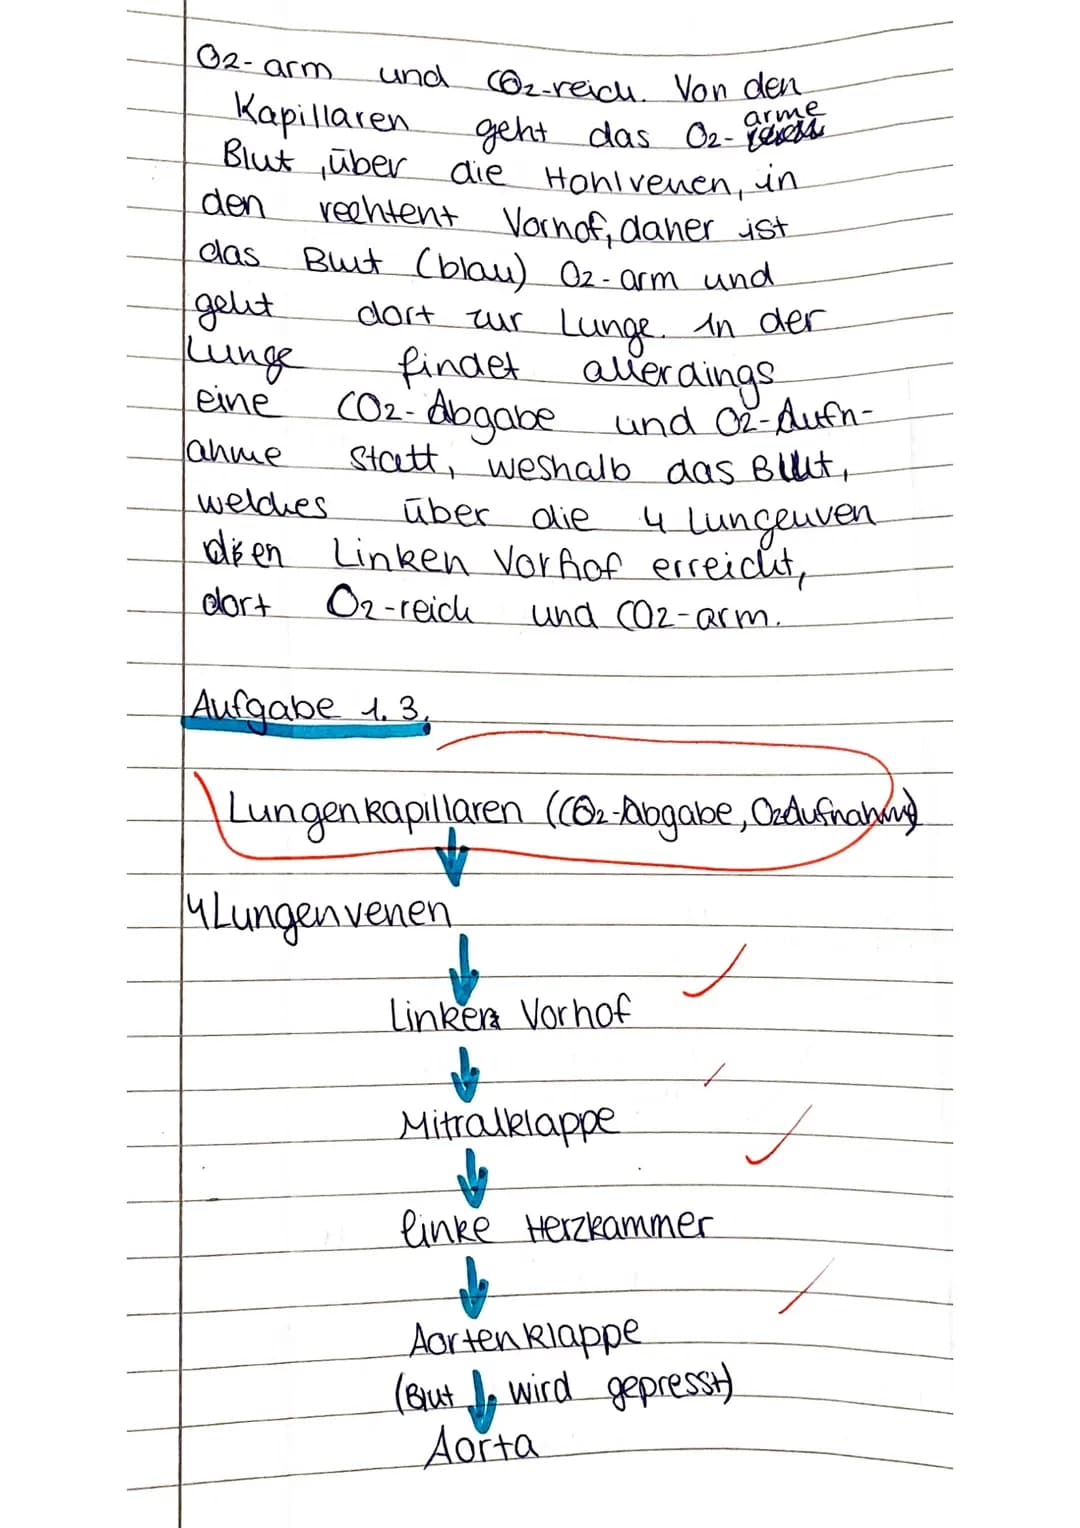 O2-arm und CO2-reich. Von den
Kapillaren geht das O2-arme
Blut, über die Hohlvenen, in
den rechtent Vorhof, daher ist
das Blut (blau) O2-arm und
geht dort zur Lunge. In der
Lunge findet allerdings
eine CO2-Abgabe und O2-Aufn-
ahme statt, weshalb das Blut,
welches über die 4 Lungenven
den Linken Vorhof erreicht,
dort O2-reich und CO2-arm.
Aufgabe 1.3.
Lungenkapillaren (CO2-Abgabe, O2Aufnahme)
4 Lungenvenen
Linker Vorhof
Mitralklappe
linke Herzkammer
Aortenklappe
(Blut wird gepresst)
Aorta